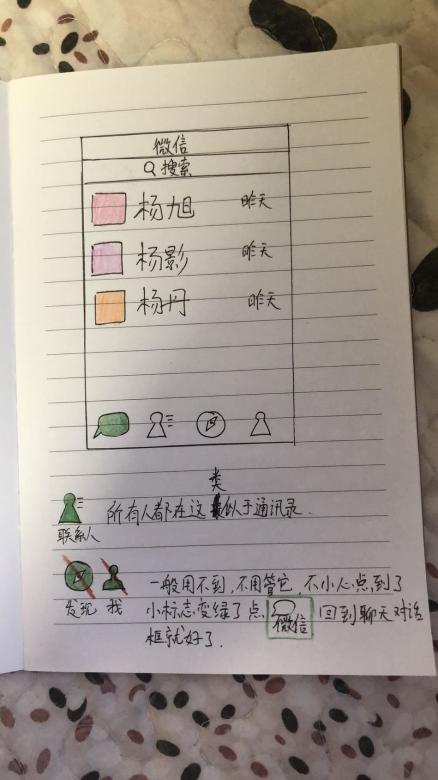 微信
搜索
杨旭 昨天
杨影 昨天
杨丹 昨天
所有人都在这类似于通讯录.
联系人
一般用不到,不用管它,不小心点到了
发现 我 小标志变绿了点 微信 回到聊天对话
框就好了.